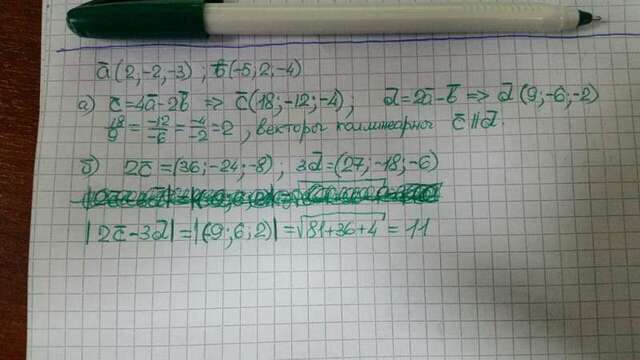 ā(2,-2,-3) ; b̄(-5; 2; -4)
а) c̄=4ā-2b̄ => c̄(18;-12;-4); d̄=2ā-b̄ => d̄(9;-6;-2)
18/9 = -12/-6 = -4/-2 = 2 , векторы коллинеарны c̄ || d̄.
б) 2c̄ =(36;-24;-8) ; 3d̄=(27;-18;-6)
|2c̄-3d̄|=|(9;6;2)|=√81+36+4 = 11